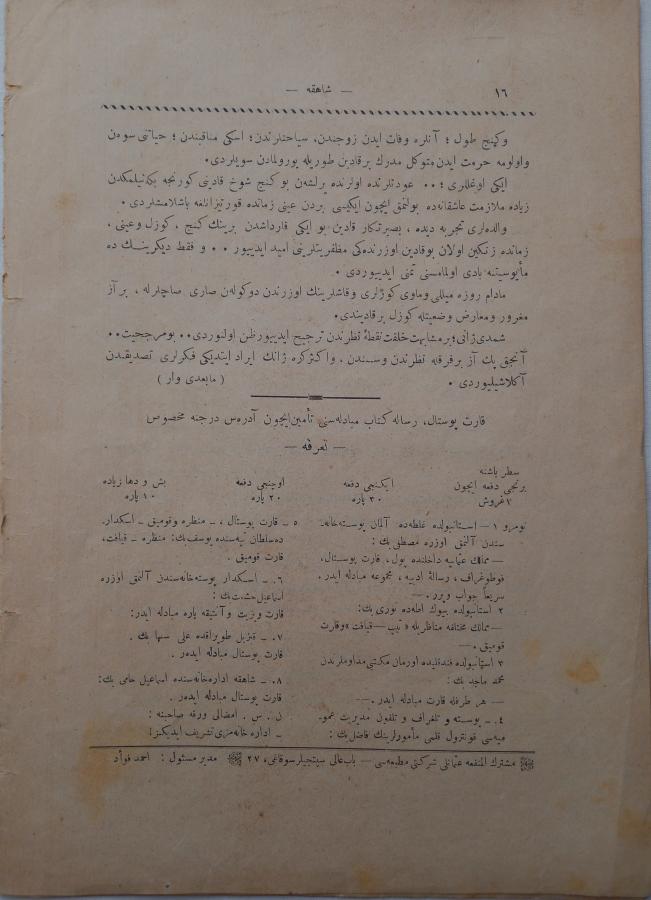 ١٦
— شاهقه —
وكنج طول ؛ آنلره وفات ايدن زوجندن، سياحتلرندن؛ اسكى مناقبندن ؛ حياتنى سومن
واولومه حرمت ايدن متوكل مدرك بر قادين طوريله يورولمادن سويلردى.
ايكى اوغللرى ؛ . . عودتلرنده اولرنده يرلشن بو كنج شوخ قادينى كورنجه بكنيلمكدن
زياده ملازمت عاشقانه ده بولنمق ايچون ايكيسى بردن عينى زمانده قورتيزانلغه باشلامشلردى .
والده لرى تجربه ديده ، بصيرتكار قادين بو ايكى قارداشدن برينك كنج ، كوزل وعينى ،
زمانده زنكين اولان بوقادين اوزرنده كى مظفريتلرينى اميد ايدييور . . و فقط ديكرينك ده
مأيوسيتنه بادى اولماسنى تمنى ايدييوردى .
مادام روزه ميللى وماوى كوزلرى وقاشلرينك اوزرندن دوكولن صارى صاچلرله ، بر آز
مغرور ومعارض وضعيتله كوزل بر قاديندى.
شمدى ژانى؛ بر مشابهت خلقت نقطهٔ نظرندن ترجيح ايدييور ظن اولنوردى . . بو مرجحيت . .
آنجق پك آز بر فرقله نظرندن وسسندن ، واكثركره ژانك ايراد ايتديكى فكرلرى تصديقدن
آكلاشيلييوردى .
( مابعدى وار )
قارت پوستال، رساله كتاب مبادله سنى تأمين ايچون آدره س درجنه مخصوص
— تعرفه —
سطر باشنه
برنجى دفعه ايچون
ايكنجى دفعه
اوچنجى دفعه
بش و دها زياده
غروش
٣٠ پاره
٢٠ پاره
١٠ پاره
نومرو ١ — استانبولده غلطه ده آلمان پوسته خانه
سندن آلنمق اوزره مصطفى بك :
— ممالك عثمانيه داخلنده پول ، قارت پوستال،
فوطوغراف ، رسالهٔ ادبيه ، مجموعه مبادله ايدر .
سريعاً جواب ويرر . —
٢ استانبولده بيوك اطه ده نورى بك :
— ممالك مختلفه مناظريله « تيپ — قيافت » وقارت
قوميق . —
٣ استانبولده فندقليده اورمان مكتبى مداوملرندن
محمد ماجد بك :
— هر طرفله قارت مبادله ايدر . —
٤ . ـ پوسته و تلغراف و تلفون مديريت عمو-
ميه سى قونترول قلمى مأمورلرينك فاضل بك :
٥ ـ قارت پوستال ، ـ منظره وقوميق ـ اسكدار
ده سلطان تپه سنده يوسف بك: منظره ـ قيافت،
قارت قوميق .
٦ . ـ اسكدار پوسته خانه سندن آلنمق اوزره
اسماعيل حشمت بك :
قارت ويزيت و آنتيقه پاره مبادله ايدر:
٧ . ـ قزيل طوپراقده على سها بك .
قارت پوستال مبادله ايدر .
٨ . ـ شاهقه اداره خانه سنده اسماعيل حامى بك :
قارت پوستال مبادله ايدر .
ن . س . امضالى ورقه صاحبنه :
ـ اداره خانه مزى تشريف ايديكز !
مشترك المنفعه عثمانلى شركتى مطبعه سى — باب عالى سوقاغى، ٢٧
مدير مسئول : احمد فؤاد